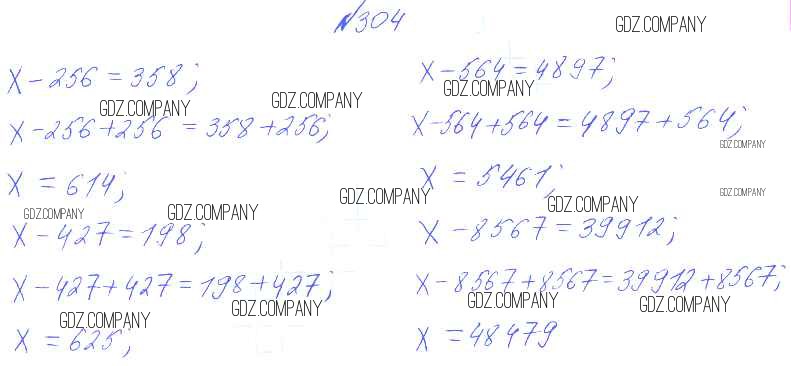 №304
GDZ.COMPANY
x - 256 = 358;
GDZ.COMPANY
GDZ.COMPANY
x - 256 + 256 = 358 + 256;
x = 614;
GDZ.COMPANY
GDZ.COMPANY
x - 427 = 198;
x - 427 + 427 = 198 + 427;
GDZ.COMPANY
GDZ.COMPANY
x = 625;
x - 564 = 4897;
GDZ.COMPANY
x - 564 + 564 = 4897 + 564;
GDZ.COMPANY
x = 5461;
GDZ.COMPANY
GDZ.COMPANY
GDZ.COMPANY
x - 8567 = 39912;
x - 8567 + 8567 = 39912 + 8567;
GDZ.COMPANY
GDZ.COMPANY
x = 48479